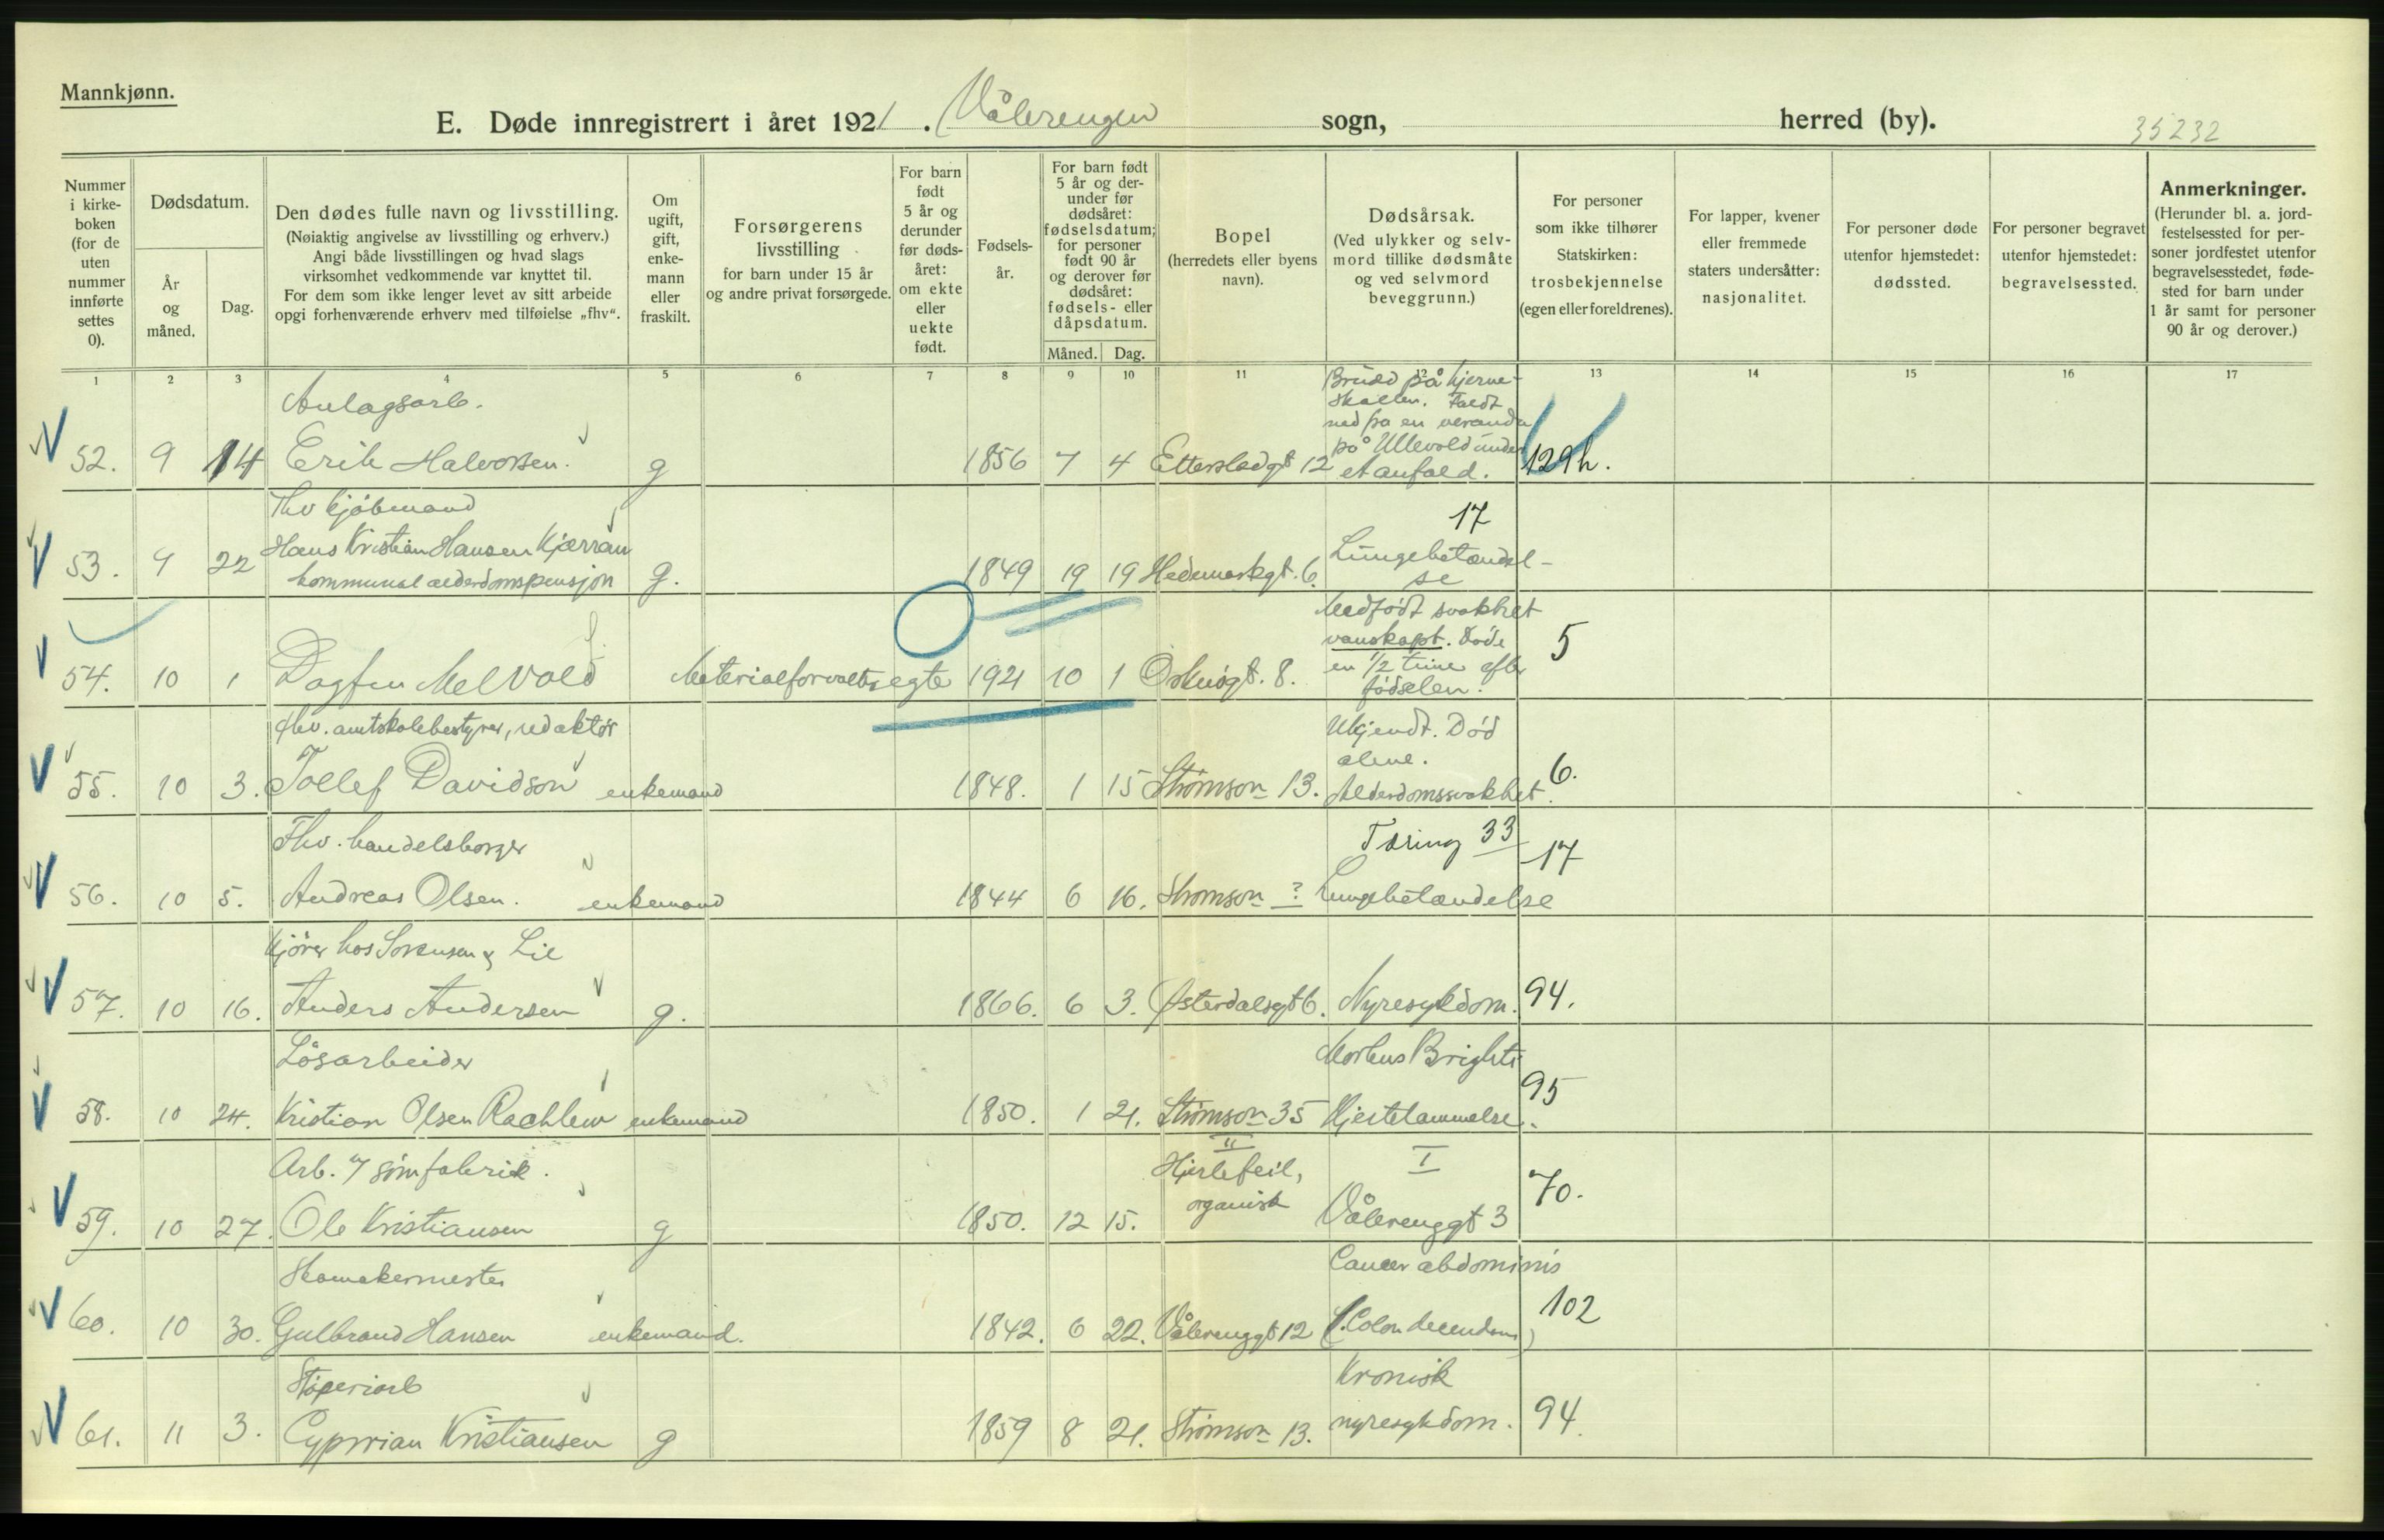 Mannkjønn.
E. Døde innregistrert i året 1921. Vålerengen sogn, herred (by).
35232
Nummer i kirke-boken (for de uten nummer innførte settes 0).
Dødsdatum.
År og måned.
Dag.
Den dødes fulle navn og livsstilling.
(Nøiaktig angivelse av livsstilling og erhverv.)
Angi både livsstillingen og hvad slags
virksomhet vedkommende var knyttet til.
For dem som ikke lenger levet av sitt arbeide
opgi forhenværende erhverv med tilføielse „fhv“.
Om ugift, gift, enke-mann eller fraskilt.
Forsørgerens livsstilling
for barn under 15 år
og andre privat forsørgede.
For barn født 5 år og derunder før døds-året: om ekte eller uekte født.
Fødsels-år.
For barn født 5 år og der-under før dødsåret: fødselsdatum; for personer født 90 år og derover før dødsåret: fødsels- eller dåpsdatum.
Måned. Dag.
Bopel
(herredets eller byens navn).
Dødsårsak.
(Ved ulykker og selv-mord tillike dødsmåte og ved selvmord beveggrunn.)
For personer som ikke tilhører Statskirken: trosbekjennelse (egen eller foreldrenes).
For lapper, kvener eller fremmede staters undersåtter: nasjonalitet.
For personer døde utenfor hjemstedet: dødssted.
For personer begravet utenfor hjemstedet: begravelsessted.
Anmerkninger.
(Herunder bl. a. jord-festelsessted for per-soner jordfestet utenfor begravelsesstedet, føde-sted for barn under 1 år samt for personer 90 år og derover.)
1 2 3 4 5 6 7 8 9 10 11 12 13 14 15 16 17
Anlagsarb.
52. 9 14 Erik Halvorsen. g 1856 7 4 Etterstadgt 12
Brudd på hjerne-
skallen. Faldt
ned fra en veranda
på Ullevold under
et anfald.
129h.
Fhv kjøbmand
53. 9 22 Hans Kristian Hansen Kjærran
kommunal alderdomspensjon g. 1849 19 19 Hedemarkgt. 6.
17
Lungebetændel-
se
54. 10 1 Dagfin Melvold Materialforvalter egte 1921 10 1
Medfødt svakhet
vanskapt. Døde
en 1/2 time efter
fødselen.
5
fhv. amtskolebestyrer, redaktør
55. 10 3. Tollef Davidson enkemand 1848. 1 15 Strømsvn 13.
Ukjendt. Død
alene.
Alderdomssvakhet.
6.
Fhv. handelsborger
56. 10 5. Andreas Olsen. enkemand 1844 6 16. Strømsvn ?
Tæring 33
Lungebetændelse
17
Kjører hos Sørensen & Lie
57. 10 16. Anders Andersen g. 1866. 6 3. Østerdalsgt 6. Nyresykdom. 94.
Løsarbeider
58. 10 24. Kristian Olsen enkemand 1850. 1 21. Strømsvn 35
Morbus Brighti
Hjertelammelse.
95
Arb. v/ sømfabrik.
59. 10 27. Ole Kristiansen g 1850. 12 15.
II
Hjertefeil,
organisk
I
Vålerenggt 3
70.
Skomakermester
60. 10 30. Gulbrand Hansen enkemand. 1842. 6 22. Vålerenggt 12
Cancer abdominis
(Colon decendens)
102
Støperiarb
61. 11 3. Cyprian Kristiansen g 1859 8 21. Strømsvn 13.
Kronisk
nyresykdom.
94.